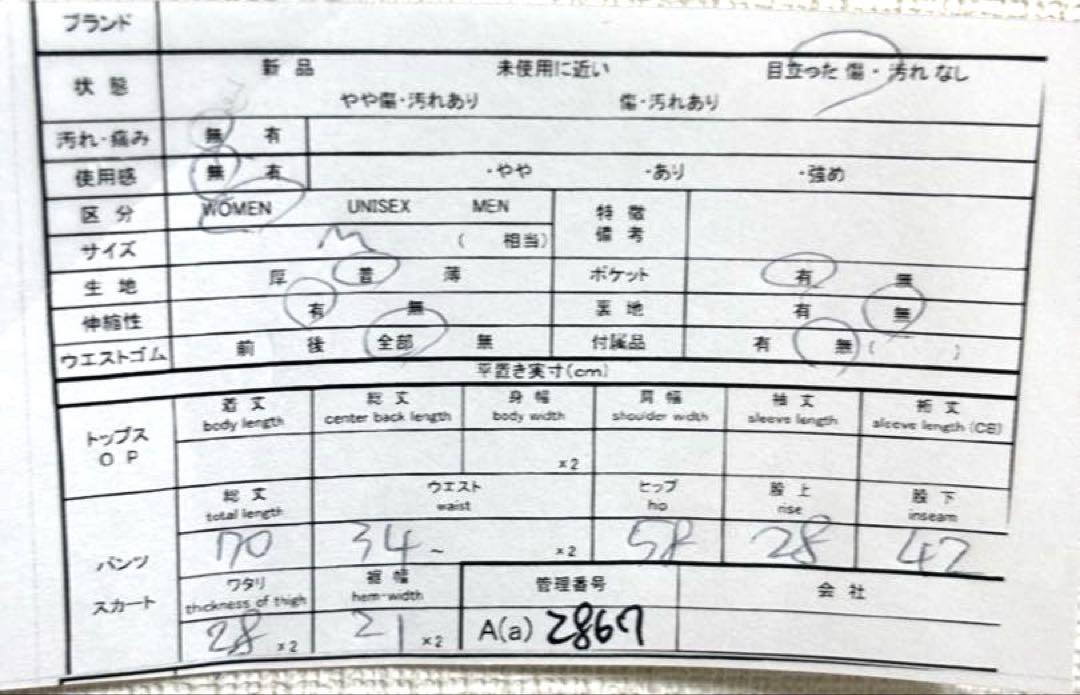 ブランド
状態 新品 未使用に近い 目立った傷・汚れなし
やや傷・汚れあり 傷・汚れあり
汚れ・痛み 無 有
使用感 無 有 ・やや ・あり ・強め
区分 WOMEN UNISEX MEN 特徴備考
サイズ M ( 相当)
生地 厚 普 薄 ポケット 有 無
伸縮性 有 無 裏地 有 無
ウエストゴム 前 後 全部 無 付属品 有 無 ( )
平置き実寸(cm)
着丈 総丈 身幅 肩幅 袖丈 裄丈
body length center back length body width shoulder width sleeve length sleeve length (CB)
トップス
OP ×2
総丈 ウエスト ヒップ 股上 股下
total length waist hip rise inseam
パンツ 70 34 ~ ×2 58 28 42
スカート ワタリ 裾幅 管理番号 会社
thickness of thigh hem-width
28 ×2 21 ×2 A(a) 2867